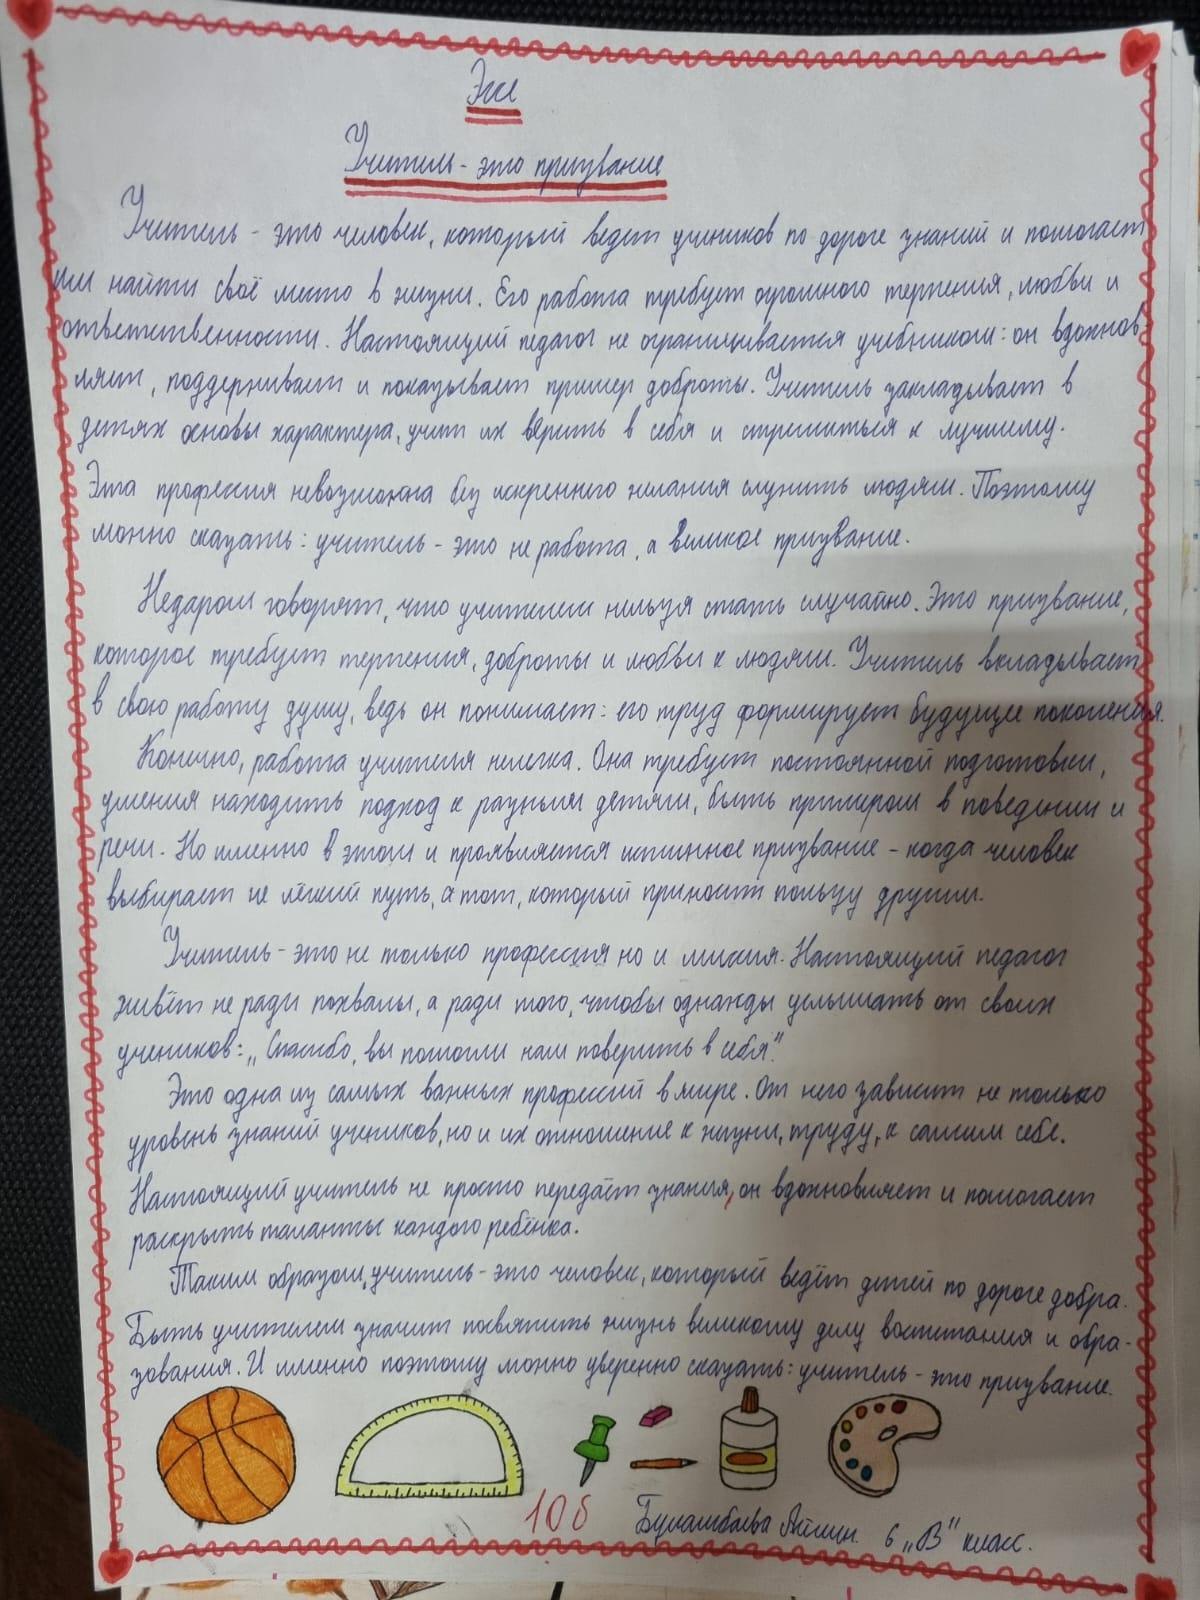 Эссе
Учитель - это призвание
Учитель - это человек, который ведет учеников по дороге знаний и помогает
им найти своё место в жизни. Его работа требует огромного терпения, любви и
ответственности. Настоящий педагог не ограничивается учебником: он вдохнов
ляет, поддерживает и показывает пример доброты. Учитель закладывает в
детях основы характера, учит их верить в себя и стремиться к лучшему.
Эта профессия невозможна без искреннего желания служить людям. Поэтому
можно сказать: учитель - это не работа, а великое призвание.
Недаром говорят, что учителем нельзя стать случайно. Это призвание,
которое требует терпения, доброты и любви к людям. Учитель вкладывает
в свою работу душу, ведь он понимает: его труд формирует будущее поколения.
Конечно, работа учителя нелегка. Она требует постоянной подготовки,
умения находить подход к разным детям, быть примером в поведении и
речи. Но именно в этом и проявляется истинное призвание - когда человек
выбирает не лёгкий путь, а тот, который приносит пользу другим.
Учитель - это не только профессия но и миссия. Настоящий педагог
живёт не ради похвалы, а ради того, чтобы однажды услышать от своих
учеников: „Спасибо, вы помогли нам поверить в себя".
Это одна из самых важных профессий в мире. От него зависит не только
уровень знаний учеников, но и их отношение к жизни, труду, к самим себе.
Настоящий учитель не просто передаёт знания, он вдохновляет и помогает
раскрыть таланты каждого ребёнка.
Таким образом, учитель - это человек, который ведёт детей по дороге добра.
Быть учителем значит посвятить жизнь великому делу воспитания и обра-
зования. И именно поэтому можно уверенно сказать: учитель - это призвание.
10б
Айлин. 6 „В" класс.